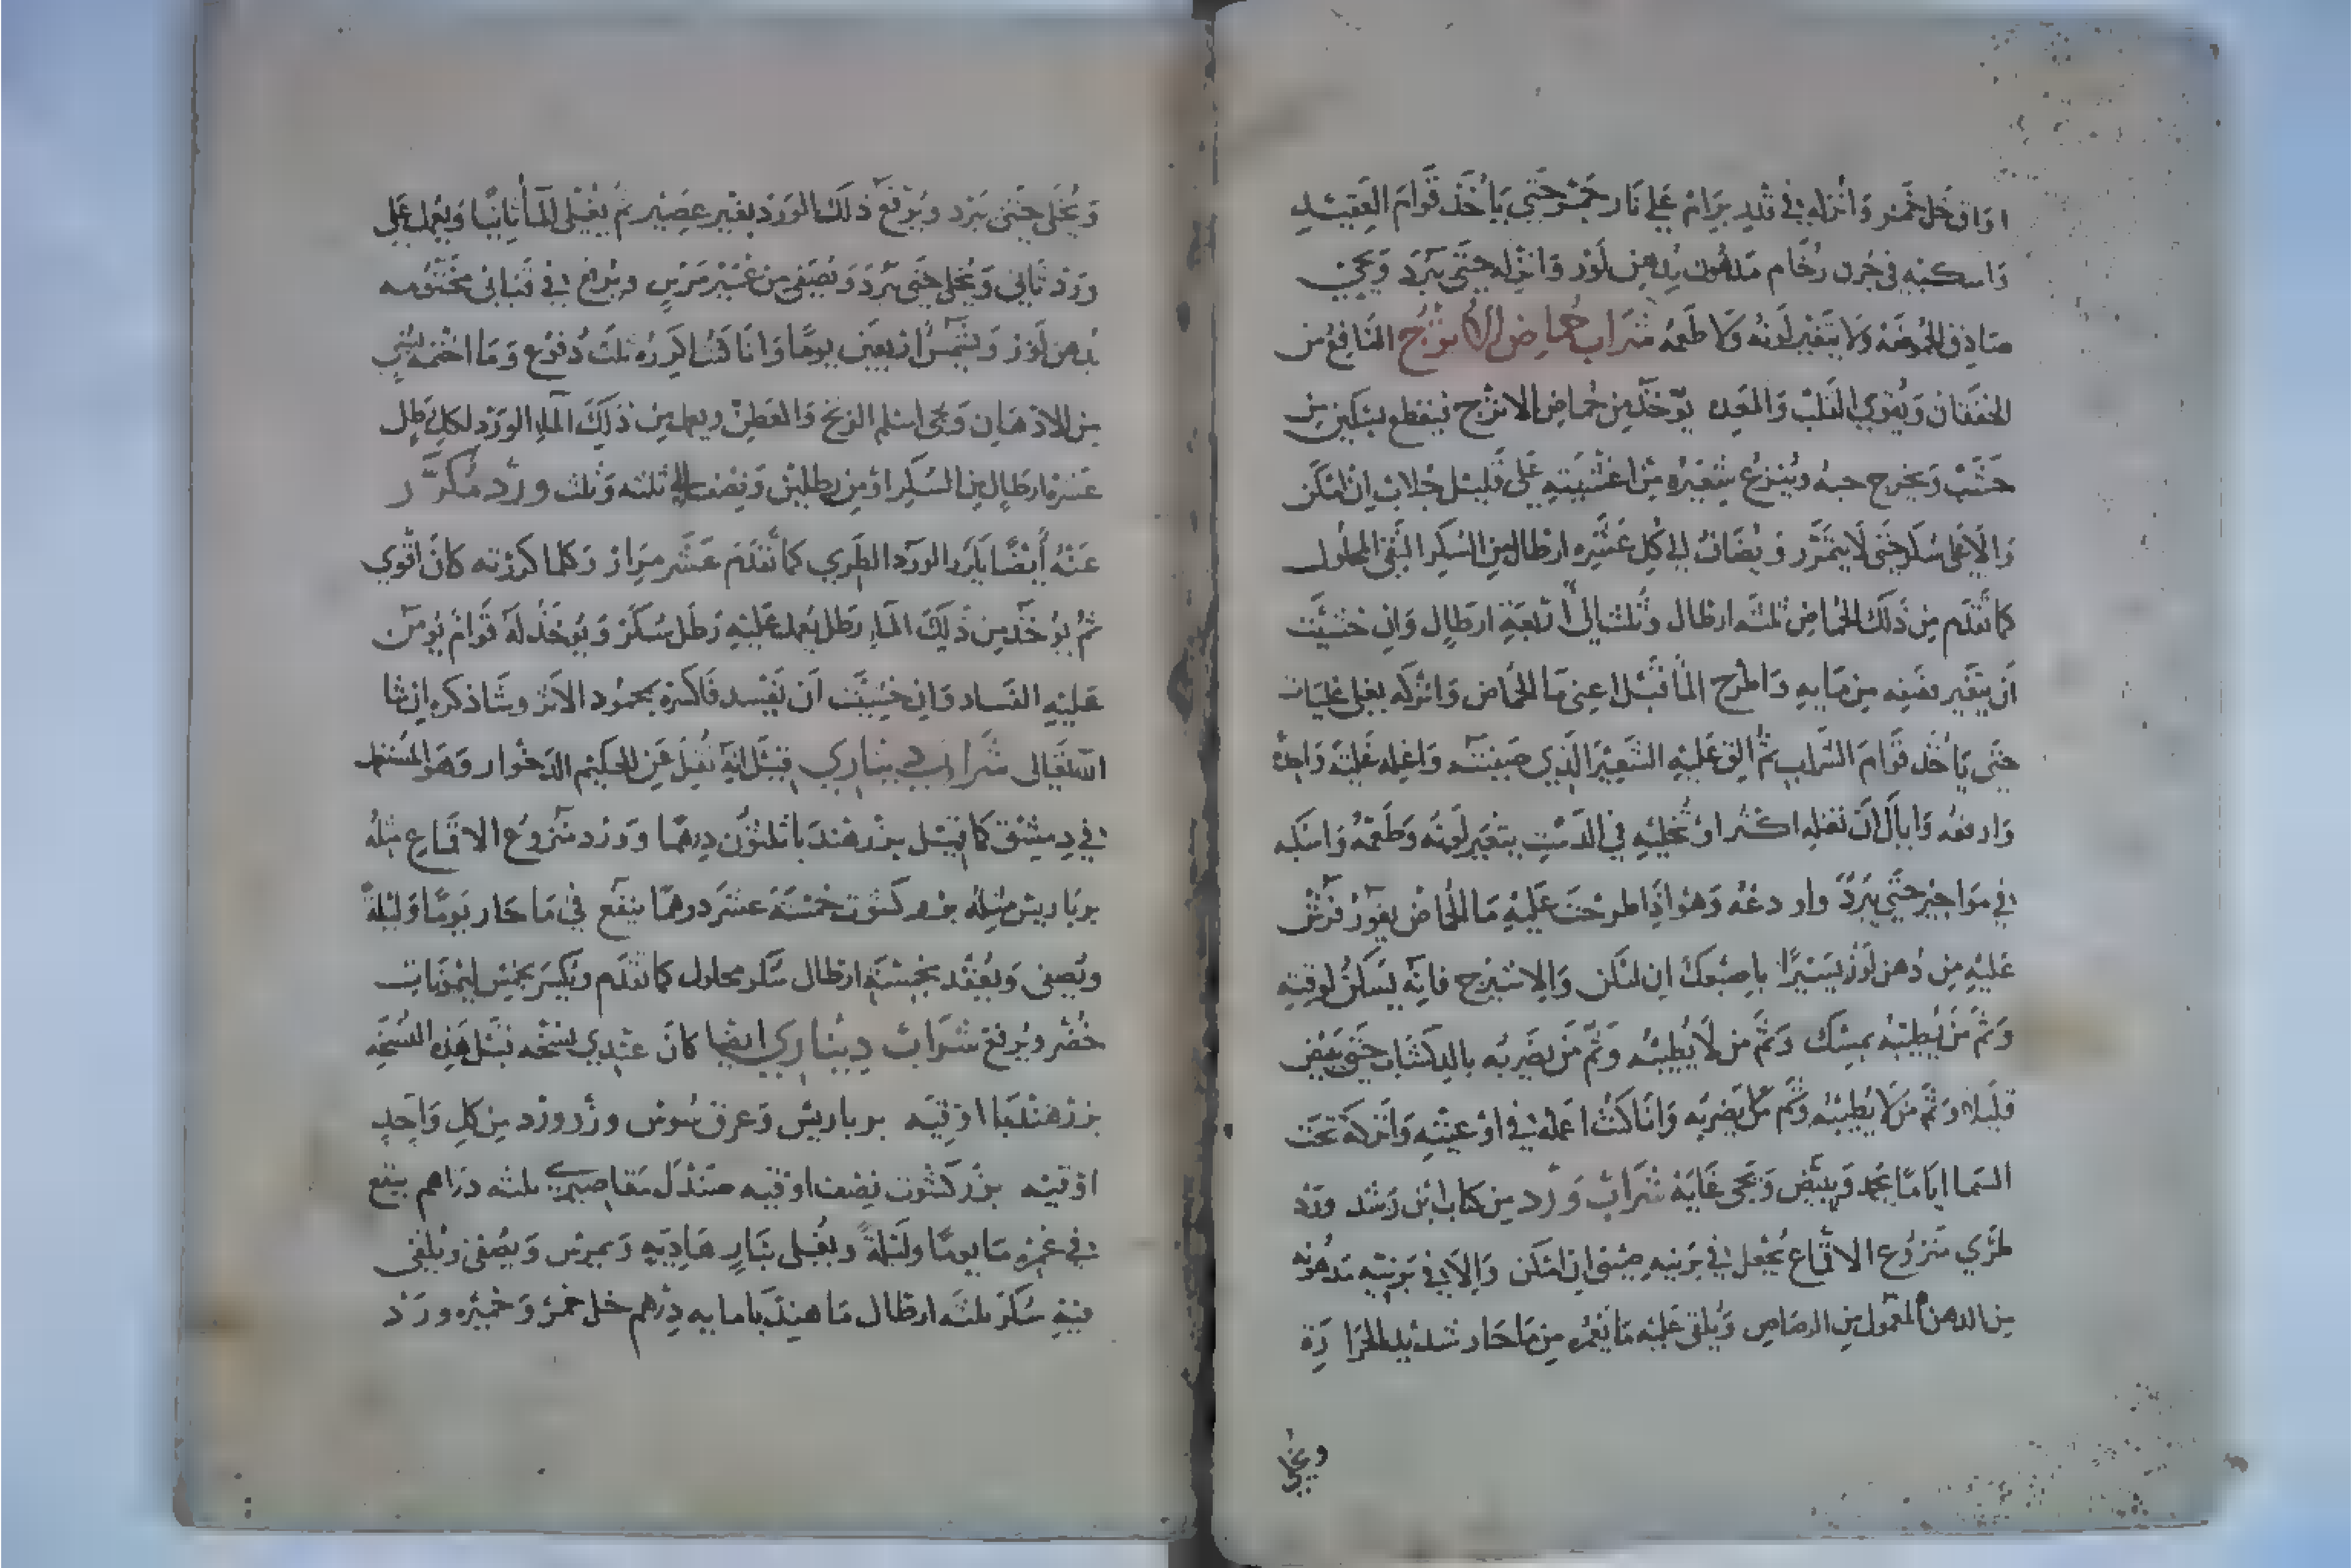 اواق خل خمر وانزله في قدر برام على نار جمر حتى يأخذ قوام العقيد
واسكبه في جرن رخام مدهون بدهن لوز واتركه حتى يبرد ويجئ
صادق الحموضه ولا يتغير لونه ولا طعمه شراب حماض الاترج النافع من
الخفقان ويقوي القلب والمعده يؤخذ من حماض الاترج فيقطع بسكين من
خشب ويخرج حبه وينزع شعيره من اغشيته على قليل جلاب ان امكن
والا على سكر حتى لا يتمرر ويضاف الى كل عشره ارطال من السكر النقي المحلول
كما تقدم من ذلك الحماض ثلثه ارطال وثلث الى اربعة ارطال وان خشيت
ان يتغير فصفه من مايه واطرح الما قبل اعنى ما الحماض واتركه يغلى غليات
حتى يأخذ قوام الشراب ثم الق عليه الشعير الذي صفيته واغله غليه واحده
وارفعه وايال ان تغله اكثر او تخليه في الدست يتغير لونه وطعمه واسكبه
في مواجير حتى يبرد واودعه وهو اذا طرحت عليه ما الحماض يفور فرش
عليه من دهن لوز يسيرا باصبعك ان امكن والا شيرج فانه يسكن لوقته
وثم من يطيبه بمسك وثم من لا يطيبه وثم من يضربه بالدكشاب حتى يبيض
قليلا وثم من لا يطيبه وثم من لا يضربه وانا كنت اعمله في اوعيته واتركه تحت
السما اياما يجمد ويبيض ويجئ غايه شراب ورد من كتاب ابن رشد ورد
طري منزوع الاقماع يجعل في برنيه صينى ان امكن والا في برنيه مدهونه
من الدهن المعمول من الرصاص ويلقى عليه ما يغمره من ما حار شديد الحرارة
ويخلى
ويخلى حتى يبرد ويرفع ذلك الورد بغير عصير ثم يغلى الما ثانيا ويعمل على
ورد ثاني ويخلى حتى يبرد ويصفى من غير مرس ويرفع في قناني مختومه
بدهن لوز ويشمس اربعين يوما وانا كنت اكرره ثلث دفوع وما اختمه بشي
من الادهان ويجئ اسلم الزنخ والعطن ويعمل من ذلك الما الورد لكل رطل
عشرة ارطال من السكر او من رطلين ونصف الى ثلثه وثلث ورد مكرر
عنه أيضا يكرر الورد الطري كما تقدم عشر مرار وكلما كررته كان اقوي
ثم يؤخذ من ذلك الماء رطل يعمل عليه رطل سكر ويؤخذ له قوام يؤمن
عليه الفساد وان خشيت ان يفسد فاكسره بحمود الاتر وشاذكره ان شا
الله تعالى شراب ديناري قيل انه نقل عن الحكيم الدخوار وهو المستعمل
في دمشق كا قيل بزر هندبا ثلثون درهما وورد منزوع الاقماع مثله
برباريس مثله بزر كشوت خمسة عشر درهما ينقع في ما حار يوما وليلة
ويصفى ويعقد بخمسة ارطال سكر محلول كما تقدم ويكسر بخمس ليمونات
خضر ويرفع شراب ديناري ايضا كان عندي نسخه قبل هذه النسخه
بزر هندبا اوقيه برباريس وعرق سوس وزر ورد من كل واحد
اوقيه بزر كشوت نصف اوقيه صندل مقاصيري ثلثه دراهم ينقع
في غمره ما يوما وليلة ويغلى بنار هاديه ويمرس ويصفى ويلقى
فيه سكر ثلثه ارطال ما هندبا مايه درهم خل خمر وخميره ورد